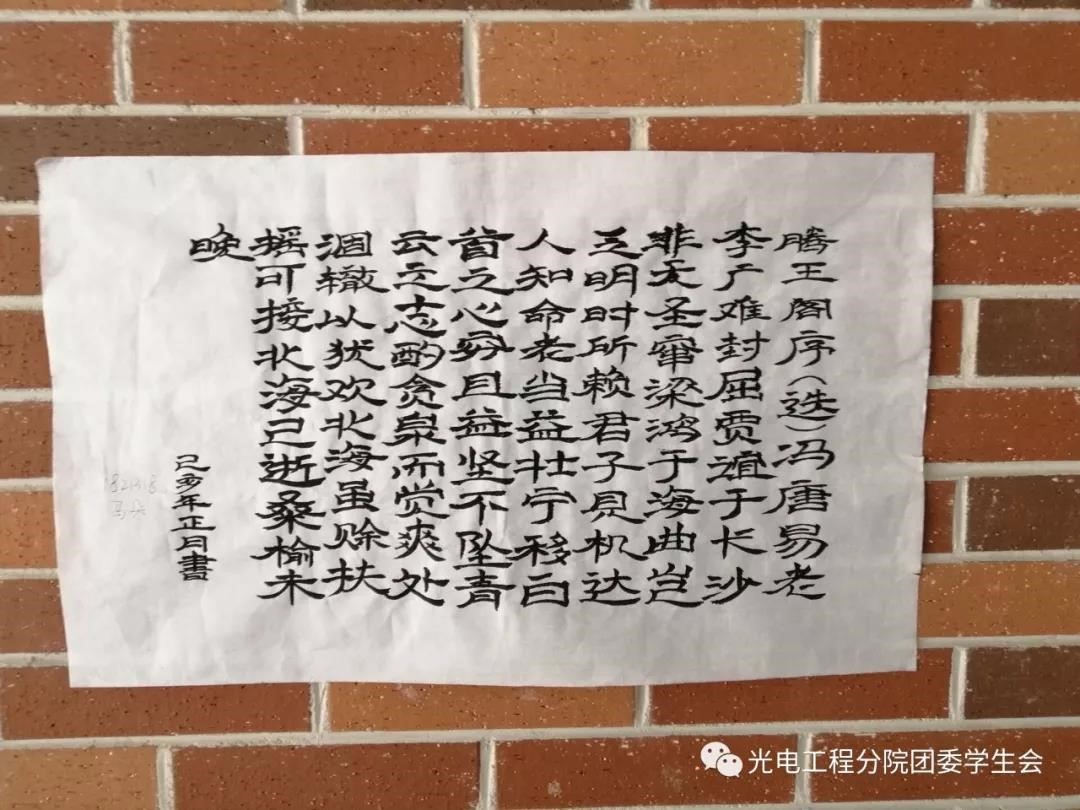 腾王阁序(迭)冯唐易老
李广难封屈贾谊于长沙
非无圣窜梁鸿于海曲岂
乏明时所赖君子見机达
人知命老当益壮宁移白
首之心穷且益坚不坠青
云之志酌贪泉而觉爽处
涸辙以犹欢北海虽赊扶
摇可接北海已逝桑榆未
晚
己亥年正月書
光电工程分院团委学生会